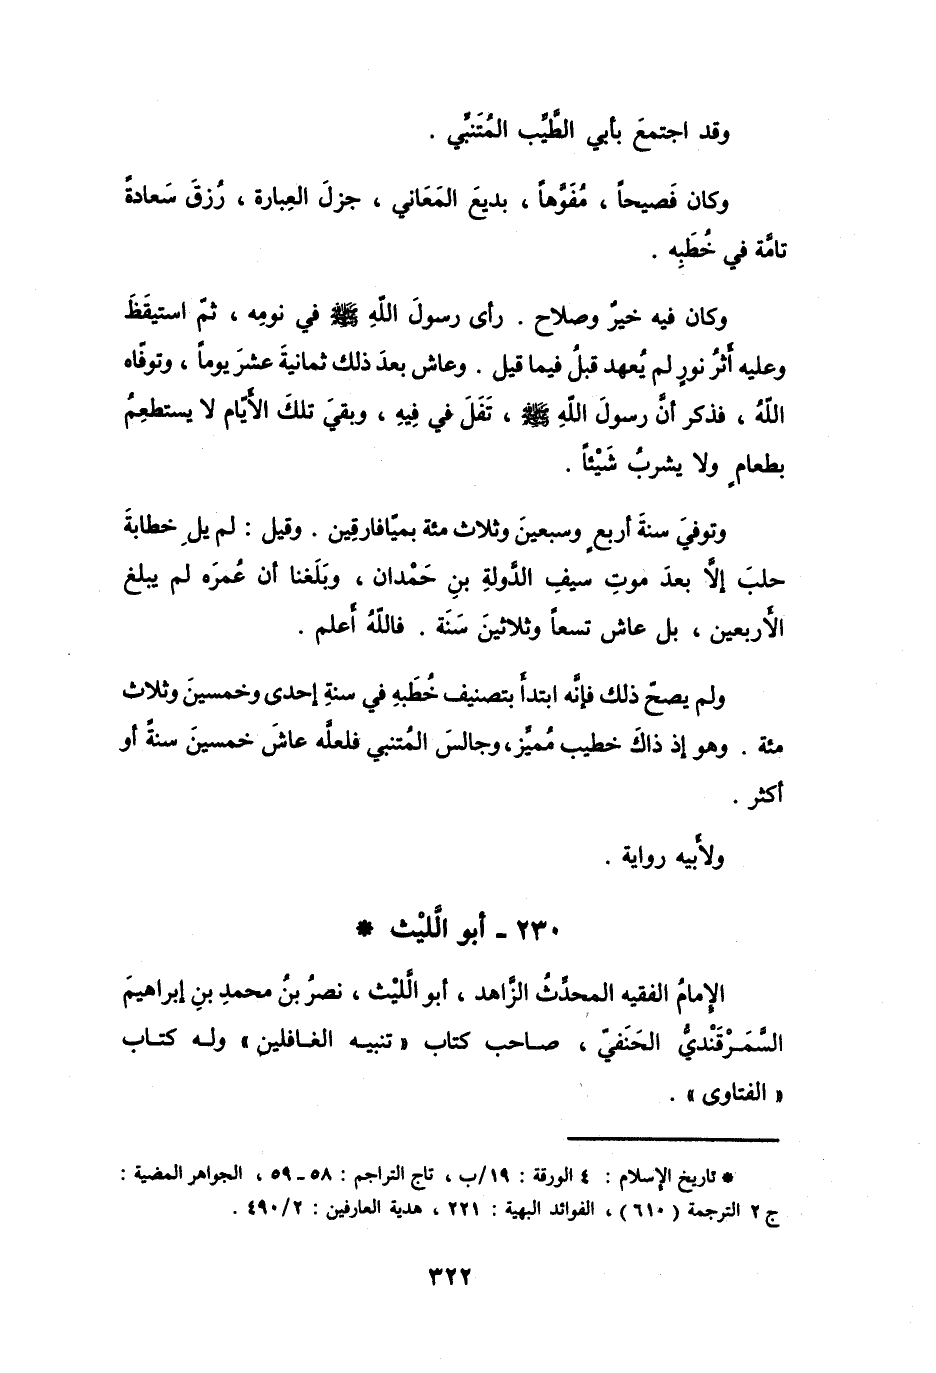 وقد اجتمعَ بأبي الطَّيِّب المُتَنبِّي .
وكان فَصيحاً ، مُفَوَّهاً ، بديعَ المَعَاني ، جزلَ العِبارة ، رُزقَ سَعادةً
تامَّة في خُطَبِه .
وكان فيه خيرٌ وصلاح . رأى رسولَ اللّهِ ﷺ في نومِه ، ثمّ استيقَظَ
وعليه أَثرُ نورٍ لم يُعهد قبلُ فيما قيل . وعاش بعدَ ذلك ثمانيةَ عشرَ يوماً ، وتوفّاه
اللّهُ ، فذكر أنَّ رسولَ اللّهِ ﷺ ، تَفَلَ في فِيهِ ، وبقيَ تلكَ الأَيّام لا يستطعِمُ
بطعامٍ ولا يشربُ شَيْئاً .
وتوفيَ سنةَ أربعٍ وسبعينَ وثلاث مئة بميّافارقِين . وقيل : لم يلِ خطابةَ
حلبَ إلَّا بعدَ موتِ سيفِ الدَّولةِ بنِ حَمْدان ، وبَلَغنا أن عُمرَه لم يبلغ
الأَربعين ، بل عاش تسعاً وثلاثينَ سَنَة . فاللّهُ أَعلم .
ولم يصحّ ذلك فإنَّه ابتدأَ بتصنيف خُطَبهِ في سنةِ إحدى وخمسينَ وثلاث
مئة . وهو إذ ذاكَ خطيب مُميَّز، وجالسَ المُتنبي فلعلَّه عاشَ خمسينَ سنةً أو
أكثر .
ولأَبيه رواية .
٢٣٠ ـ أبو الَّليْث *
الإمامُ الفقيه المحدِّثُ الزَّاهد ، أبو الَّليْث ، نصرُ بنُ محمدِ بنِ إبراهيمَ
السَّمَـرْقَنْديُّ الحَنَفيّ ، صـاحب كتاب « تنبيـه الغـافلين » ولـه كتـاب
« الفتاوى » .
* تاريخ الإسلام : ٤ الورقة : ١٩/ب ، تاج التراجم : ٥٨ ـ ٥٩ ، الجواهر المضية :
ج ٢ الترجمة ( ٦١٠ ) ، الفوائد البهية : ٢٢١ ، هدية العارفين : ٤٩٠/٢ .
٣٢٢